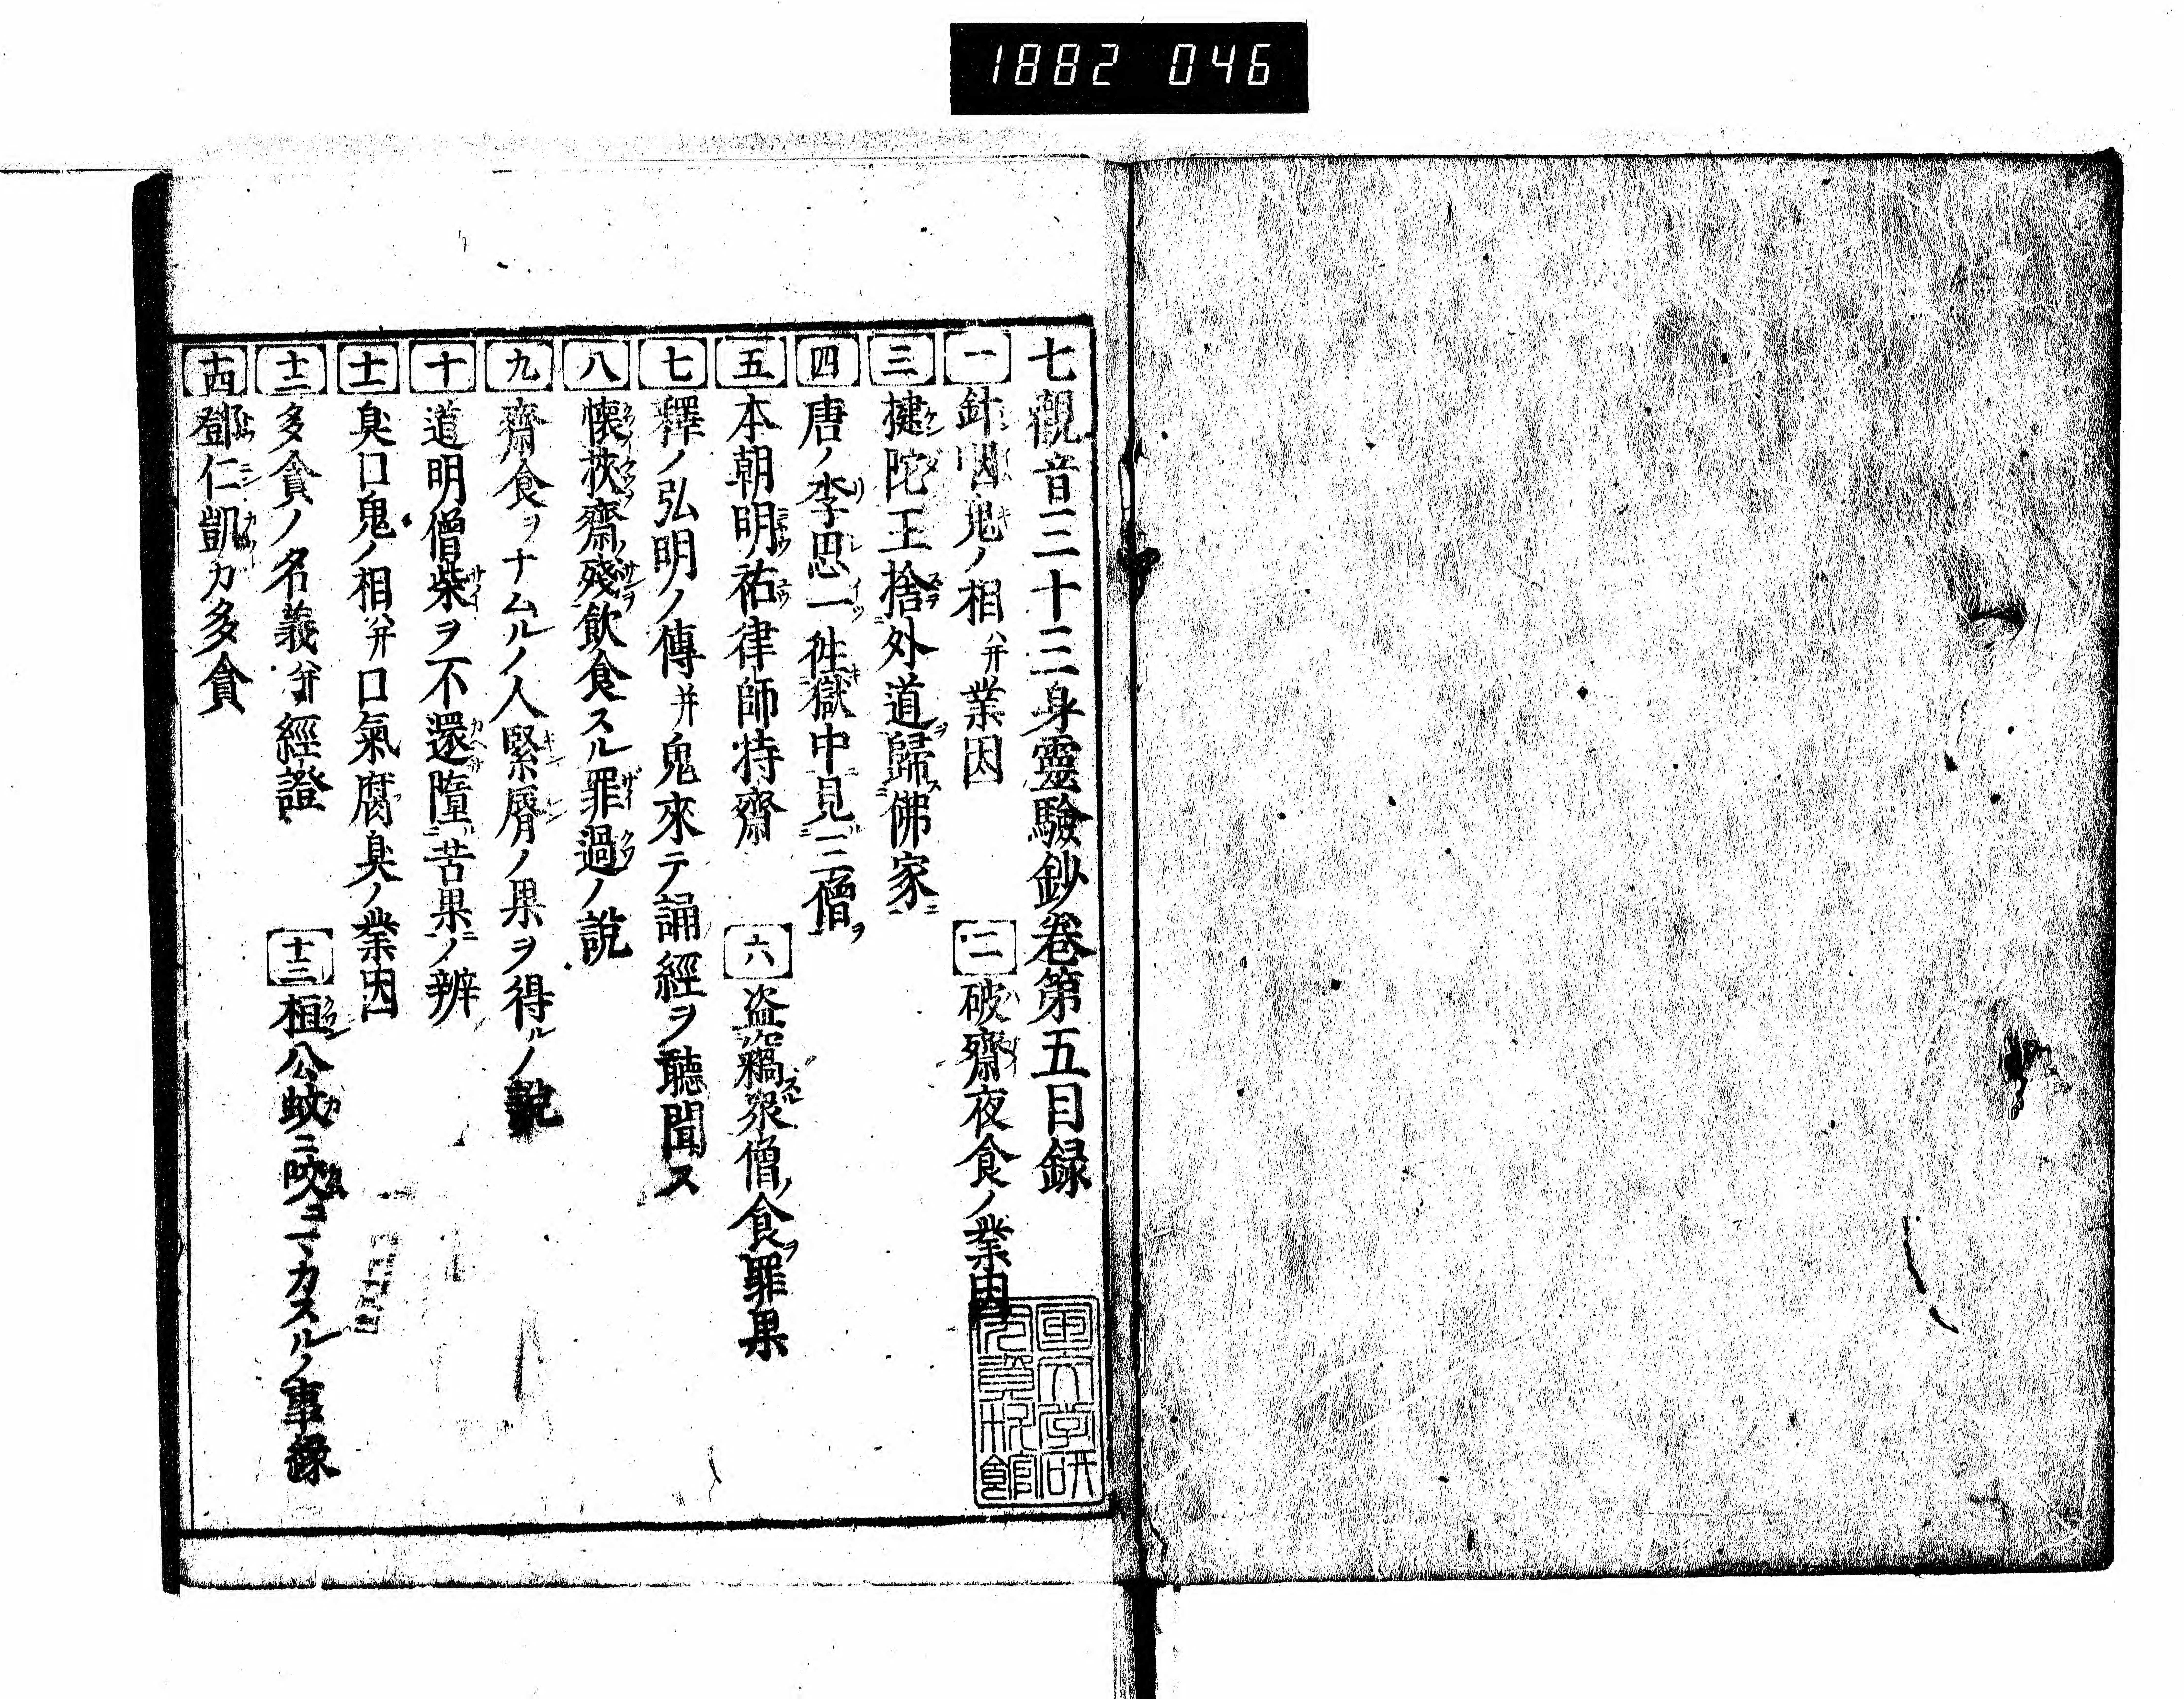 1882 046
七觀音三十三身靈驗鈔卷第五目録
一 針咽鬼ノ相并業因 二 破齋夜食ノ業因
三 揵陀王捨外道歸佛家
四 唐ノ李思一徃獄中見三僧
五 本朝明祐律師持齋 六 盜糯衆僧食罪果
七 釋ノ弘明ノ傳并鬼來テ誦經ヲ聽聞ス
八 懷挾齋殘飲食スル罪過ノ説
九 齋食ヲナムルノ人緊脣ノ果ヲ得ルノ説
十 道明僧柴ヲ不還墮苦果ノ辨
十一 臭口鬼ノ相并口氣腐臭ノ業因
十二 多貪ノ名義并經證 十三 桓公蚊ニ咬マカスルノ事縁
十四 鄧仁凱カ多貪
国文学研究資料館